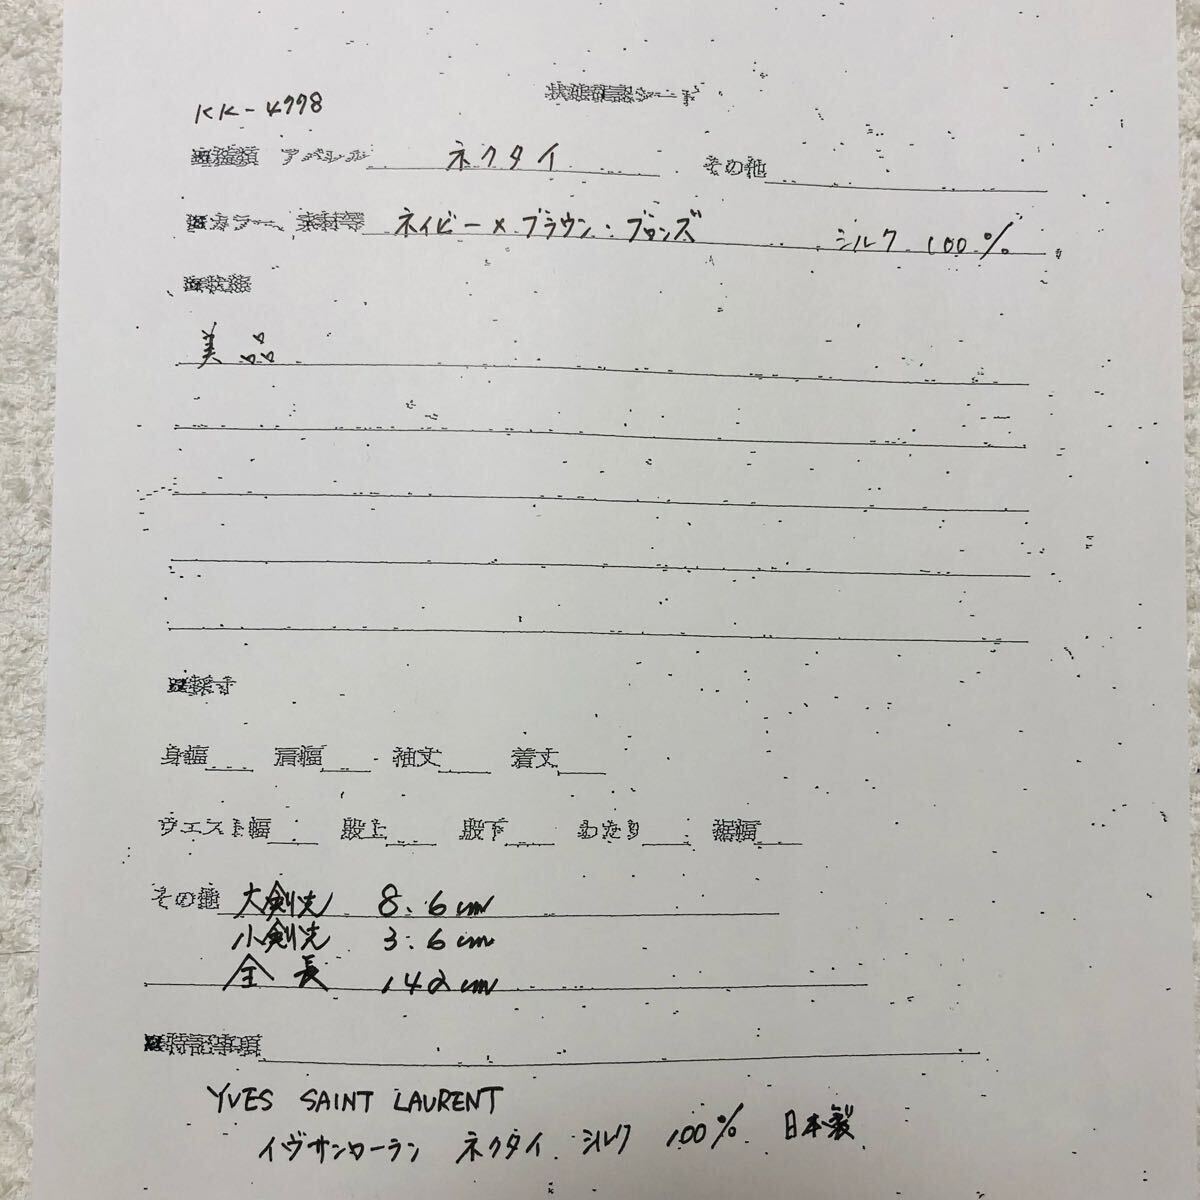 状態確認シート
KK-4998
■種類 アパレル ネクタイ その他
■カラー、素材等 ネイビー×ブラウン・ブロンズ シルク 100%
■状態
美品
■採寸
身幅 肩幅 袖丈 着丈
ウエスト幅 股上 股下 わたり 裾幅
その他 大剣先 8.6cm
小剣先 3.6cm
全長 142cm
■特記事項
YVES SAINT LAURENT
イヴサンローラン ネクタイ シルク 100% 日本製